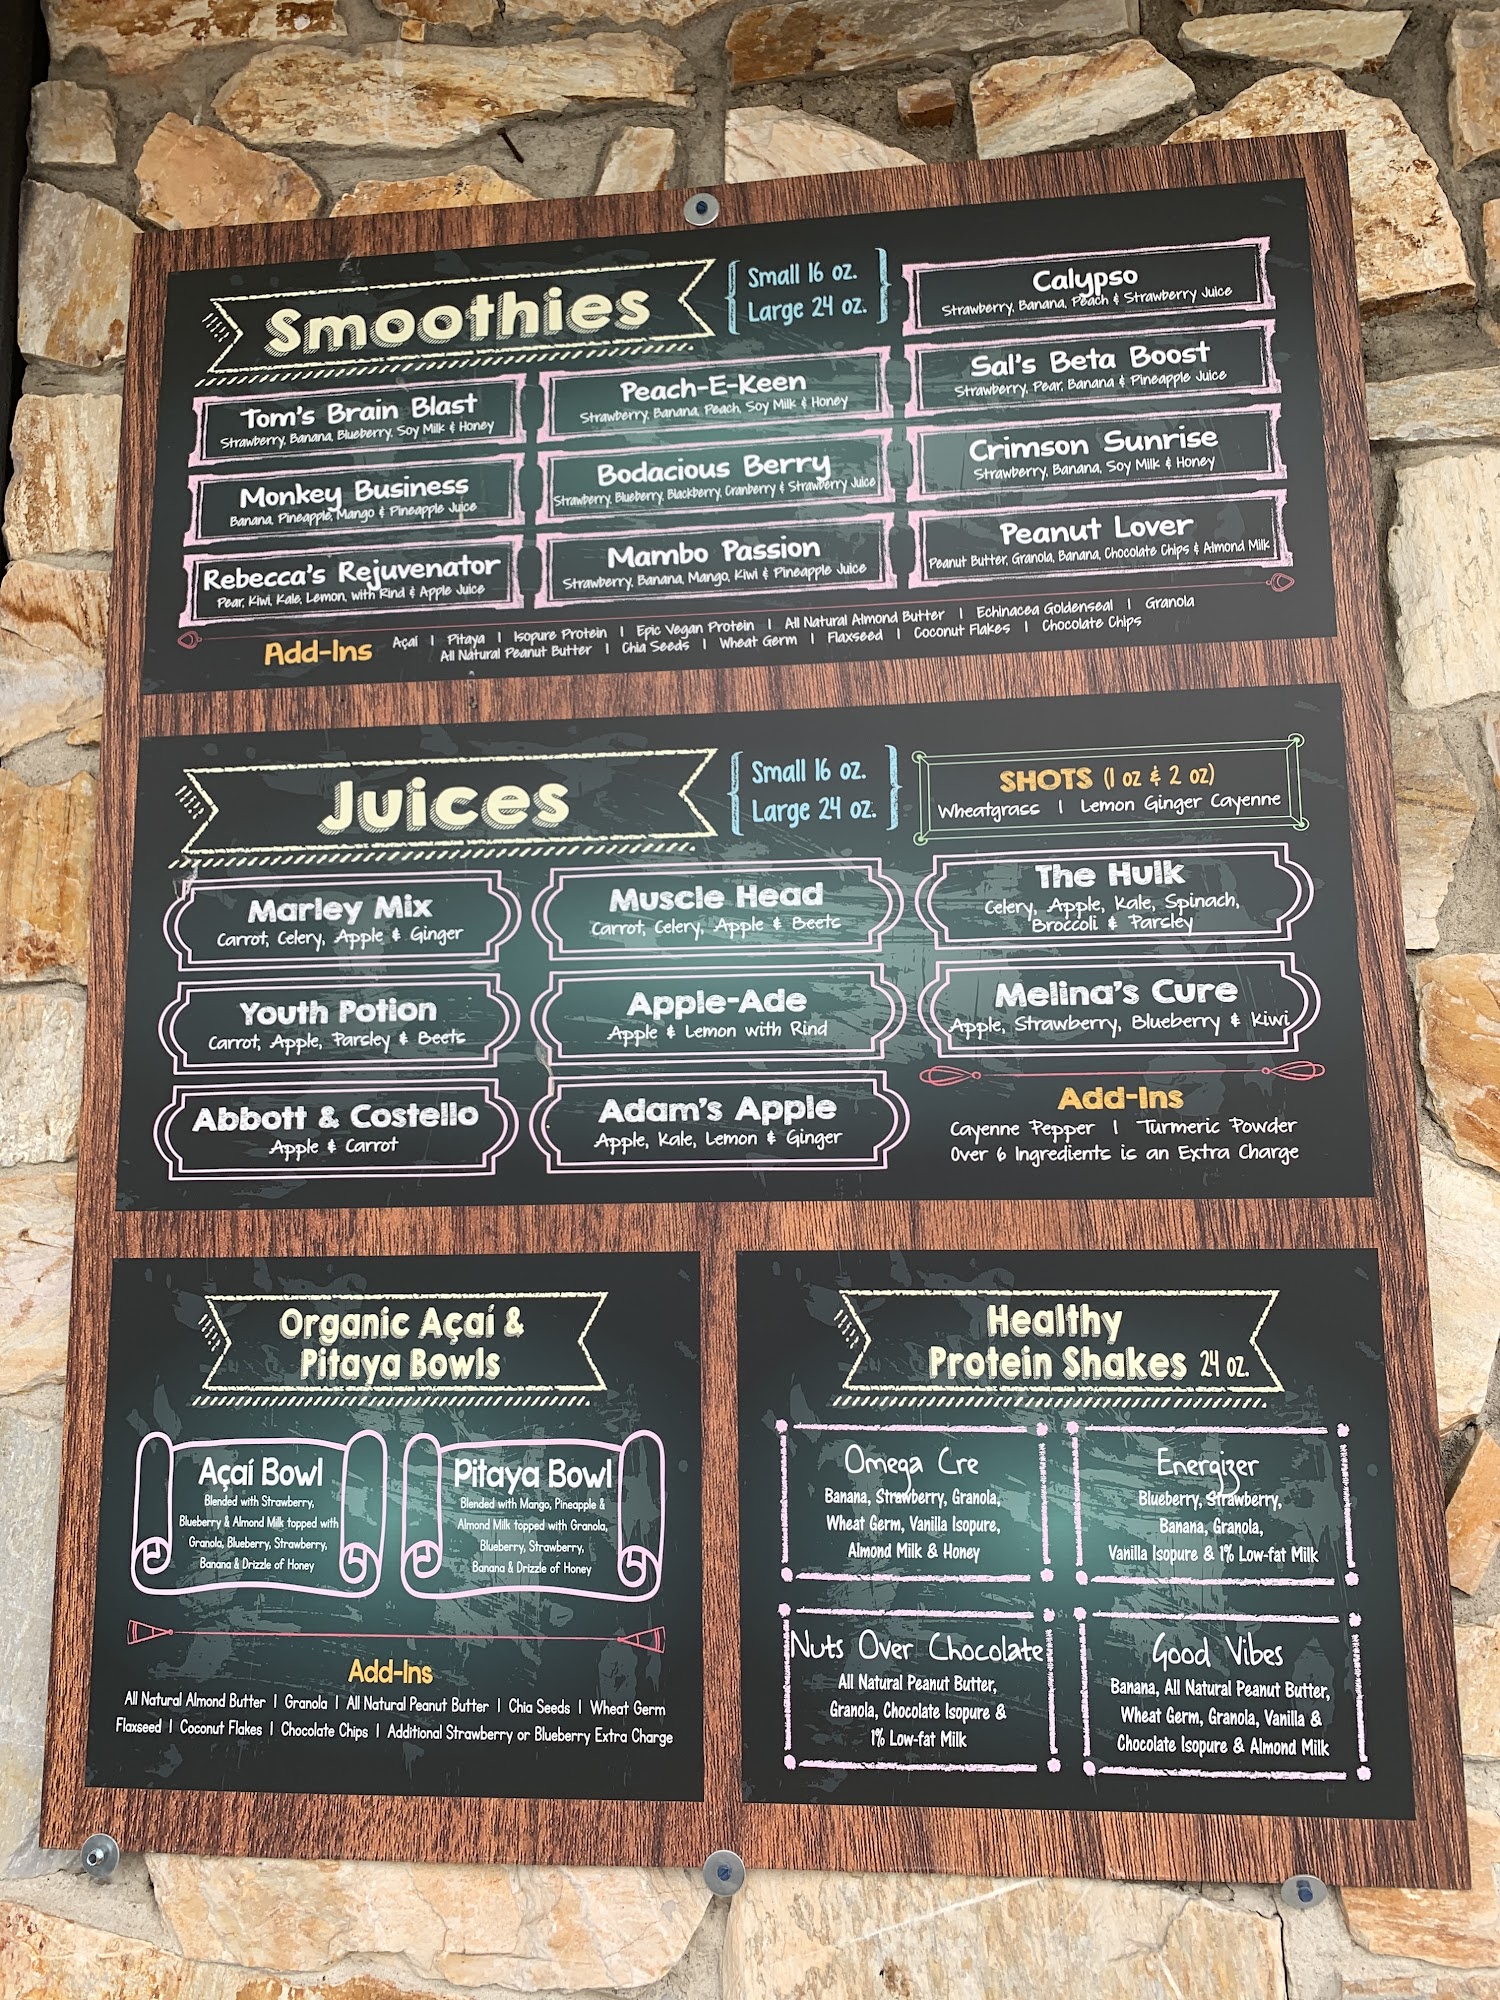 Smoothies
Small 16 oz.
Large 24 oz.
Tom's Brain Blast
Strawberry, Banana, Blueberry, Soy Milk & Honey
Monkey Business
Banana, Pineapple, Mango & Pineapple Juice
Rebecca's Rejuvenator
Pear, Kiwi, Kale, Lemon, with Rind & Apple Juice
Peach-E-Keen
Strawberry, Banana, Peach, Soy Milk & Honey
Bodacious Berry
Strawberry, Blueberry, Blackberry, Cranberry & Strawberry Juice
Mambo Passion
Strawberry, Banana, Mango, Kiwi & Pineapple Juice
Calypso
Strawberry, Banana, Peach & Strawberry Juice
Sal's Beta Boost
Strawberry, Pear, Banana & Pineapple Juice
Crimson Sunrise
Strawberry, Banana, Soy Milk & Honey
Peanut Lover
Peanut Butter, Granola, Banana, Chocolate Chips & Almond Milk
Add-Ins
Açaí | Pitaya | Isopure Protein | Epic Vegan Protein | All Natural Almond Butter | Echinacea Goldenseal | Granola
All Natural Peanut Butter | Chia Seeds | Wheat Germ | Flaxseed | Coconut Flakes | Chocolate Chips
Juices
Small 16 oz.
Large 24 oz.
SHOTS (1 oz & 2 oz)
Wheatgrass | Lemon Ginger Cayenne
Marley Mix
Carrot, Celery, Apple & Ginger
Youth Potion
Carrot, Apple, Parsley & Beets
Abbott & Costello
Apple & Carrot
Muscle Head
Carrot, Celery, Apple & Beets
Apple-Ade
Apple & Lemon with Rind
Adam's Apple
Apple, Kale, Lemon & Ginger
The Hulk
Celery, Apple, Kale, Spinach,
Broccoli & Parsley
Melina's Cure
Apple, Strawberry, Blueberry & Kiwi
Add-Ins
Cayenne Pepper | Turmeric Powder
Over 6 Ingredients is an Extra Charge
Organic Açaí &
Pitaya Bowls
Açaí Bowl
Blended with Strawberry,
Blueberry & Almond Milk topped with
Granola, Blueberry, Strawberry,
Banana & Drizzle of Honey
Pitaya Bowl
Blended with Mango, Pineapple &
Almond Milk topped with Granola,
Blueberry, Strawberry,
Banana & Drizzle of Honey
Add-Ins
All Natural Almond Butter | Granola | All Natural Peanut Butter | Chia Seeds | Wheat Germ
Flaxseed | Coconut Flakes | Chocolate Chips | Additional Strawberry or Blueberry Extra Charge
Healthy
Protein Shakes 24 oz.
Omega Cre
Banana, Strawberry, Granola,
Wheat Germ, Vanilla Isopure,
Almond Milk & Honey
Energizer
Blueberry, Strawberry,
Banana, Granola,
Vanilla Isopure & 1% Low-fat Milk
Nuts Over Chocolate
All Natural Peanut Butter,
Granola, Chocolate Isopure &
1% Low-fat Milk
Good Vibes
Banana, All Natural Peanut Butter,
Wheat Germ, Granola, Vanilla &
Chocolate Isopure & Almond Milk